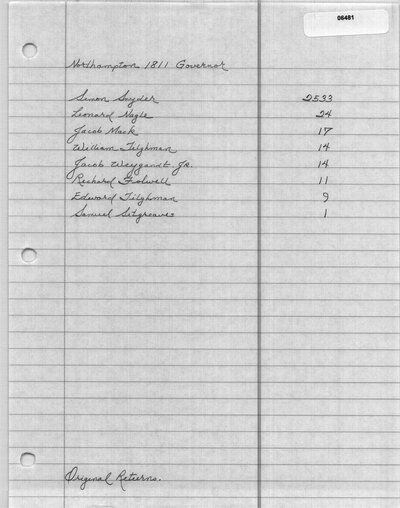 06481
Northampton 1811 Governor
Simon Snyder 2533
Leonard Nagle 24
Jacob Mack 17
William Tilghman 14
Jacob Weygandt Jr. 14
Richard Folwell 11
Edward Tilghman 9
Samuel Sitgreaves 1
Original Returns.